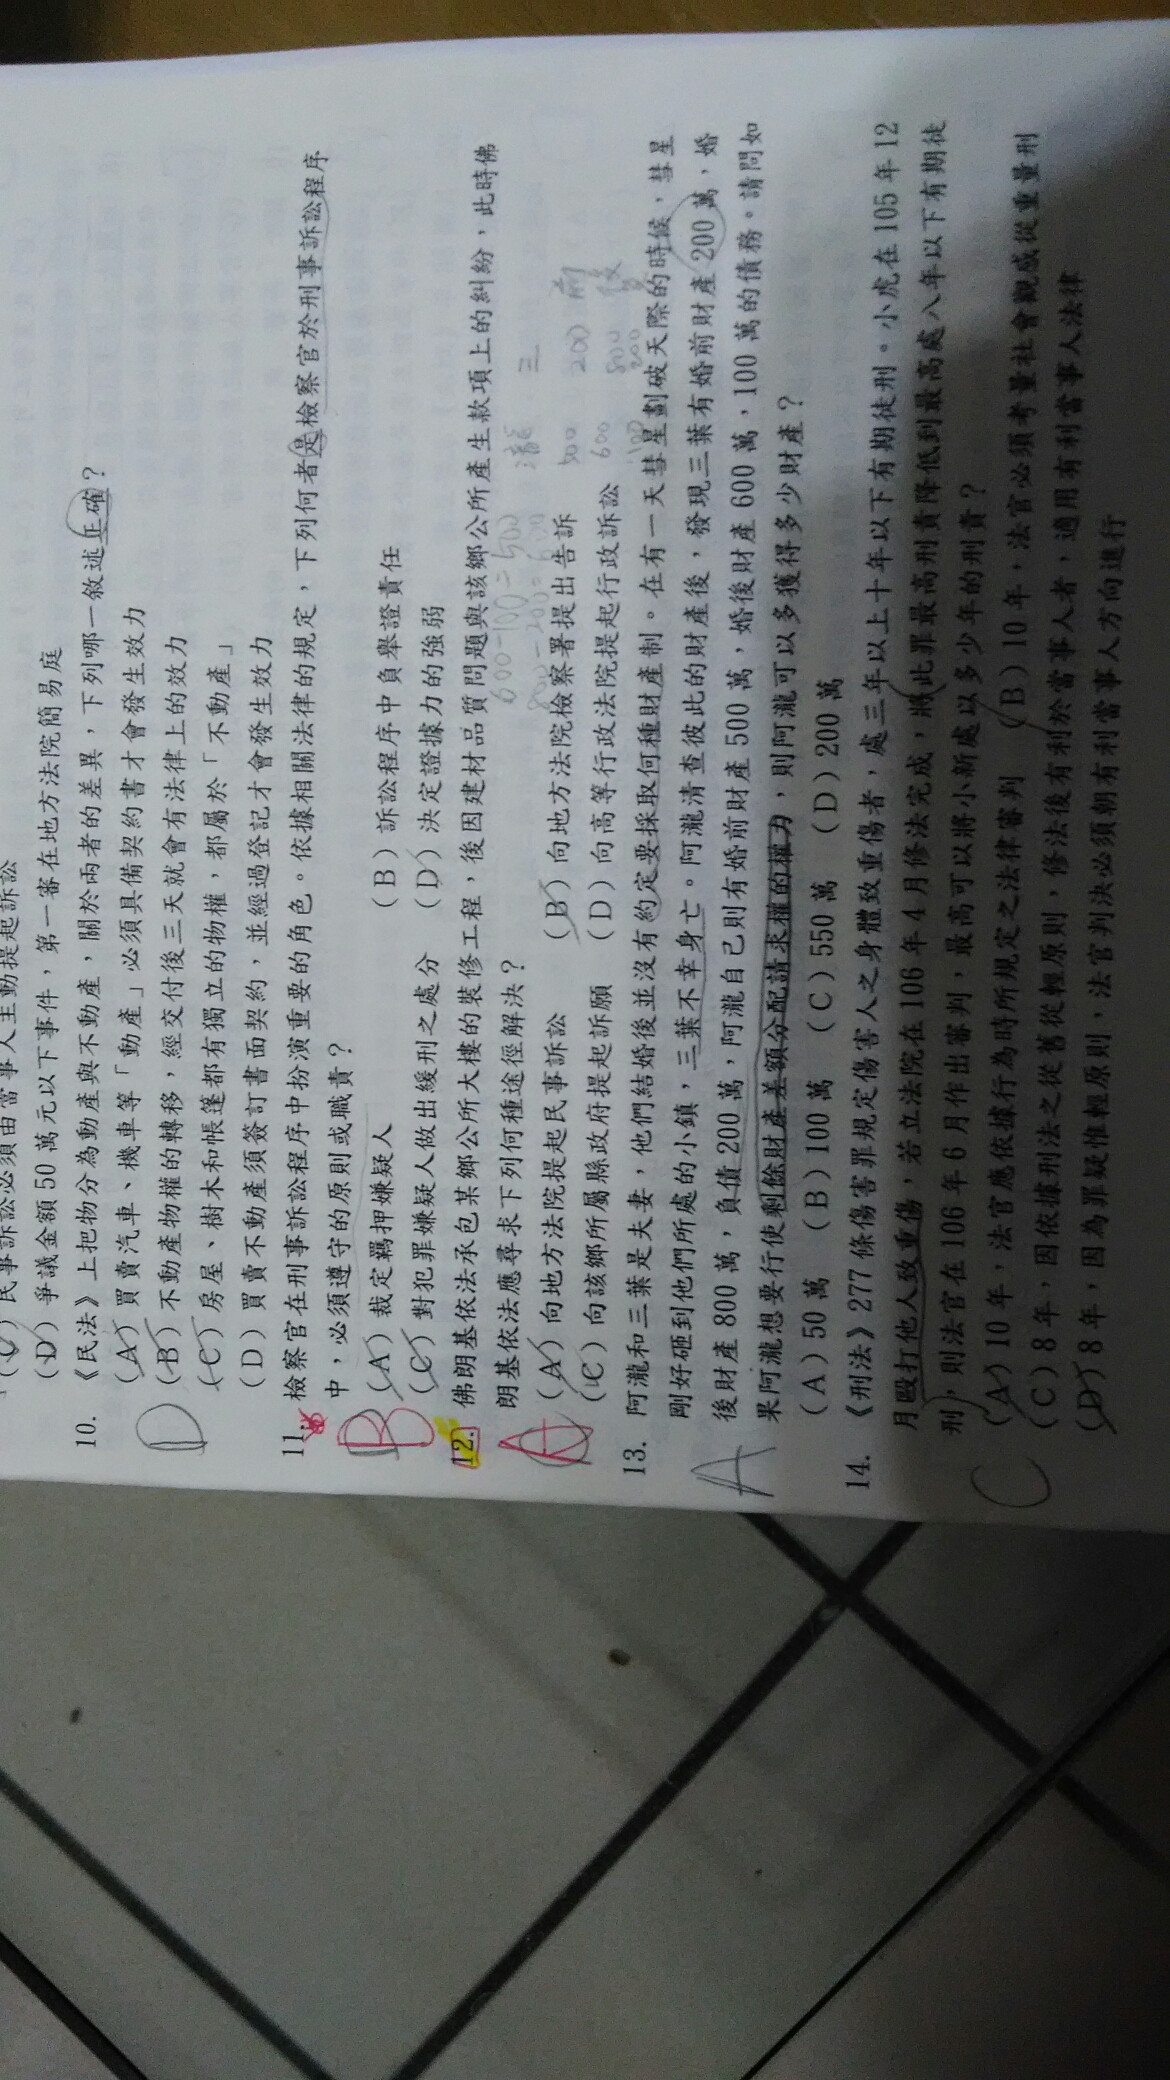 民事訴訟必須由當事人主動提起訴訟
(D)爭議金額50萬元以下事件，第一審在地方法院簡易庭
10.《民法》上把物分為動產與不動產，關於兩者的差異，下列哪一敘述正確？
D
(A)買賣汽車、機車等「動產」必須具備契約書才會發生效力
(B)不動產物權的轉移，經交付後三天就會有法律上的效力
(C)房屋、樹木和帳篷都有獨立的物權，都屬於「不動產」
(D)買賣不動產須簽訂書面契約，並經過登記才會發生效力
11.檢察官在刑事訴訟程序中扮演重要的角色。依據相關法律的規定，下列何者是檢察官於刑事訴訟程序
中，必須遵守的原則或職責？
B
(A)裁定羈押嫌疑人 (B)訴訟程序中負舉證責任
(C)對犯罪嫌疑人做出緩刑之處分 (D)決定證據力的強弱
12.佛朗基依法承包某鄉公所大樓的裝修工程，後因建材品質問題與該鄉公所產生款項上的糾紛，此時佛
朗基依法應尋求下列何種途徑解決？
A
(A)向地方法院提起民事訴訟 (B)向地方法院檢察署提出告訴
(C)向該鄉所屬縣政府提起訴願 (D)向高等行政法院提起行政訴訟
600-100=500
瀧 三
500 200 前
600 800 後
100 200
13.阿瀧和三葉是夫妻，他們結婚後並沒有約定要採取何種財產制。在有一天彗星劃破天際的時候，彗星
剛好砸到他們所處的小鎮，三葉不幸身亡。阿瀧清查彼此的財產後，發現三葉有婚前財產200萬，婚
後財產800萬，負債200萬，阿瀧自己則有婚前財產500萬，婚後財產600萬，100萬的債務。請問如
果阿瀧想要行使剩餘財產差額分配請求權的權力，則阿瀧可以多獲得多少財產？
A
(A)50萬 (B)100萬 (C)550萬 (D)200萬
14.《刑法》277條傷害罪規定傷害人之身體致重傷者，處三年以上十年以下有期徒刑。小虎在105年12
月毆打他人致重傷，若立法院在106年4月修法完成，將此罪最高刑責降低到最高處八年以下有期徒
刑，則法官在106年6月作出審判，最高可以將小新處以多少年的刑責？
C
(A)10年，法官應依據行為時所規定之法律審判 (B)10年，法官必須考量社會觀感從重量刑
(C)8年，因依據刑法之從舊從輕原則，修法後有利於當事人者，適用有利當事人法律
(D)8年，因為罪疑惟輕原則，法官判決必須朝有利當事人方向進行